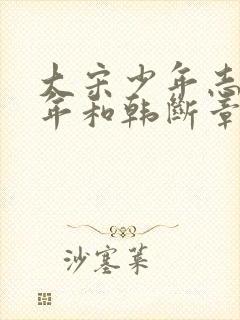 大宋少年志
年和韩断章
沙塞菜